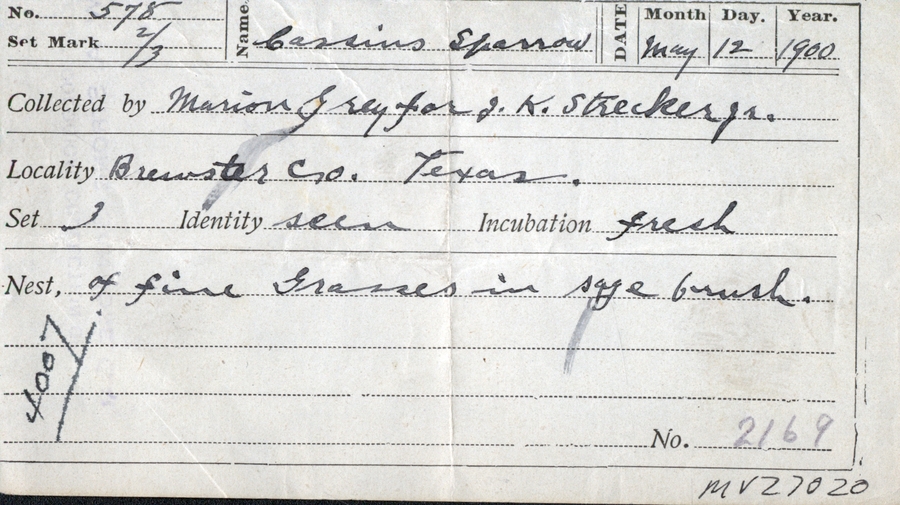 No. 578 Name. Cassins Sparrow DATE Month Day. Year.
Set Mark 2/3 May 12 1900
Collected by Marion Grey for J. K. Strecker Jr.
Locality Brewster Co. Texas.
Set 3 Identity seen Incubation fresh
Nest, of fine Grasses in sage brush.
4007
No. 2169
MVZ7020